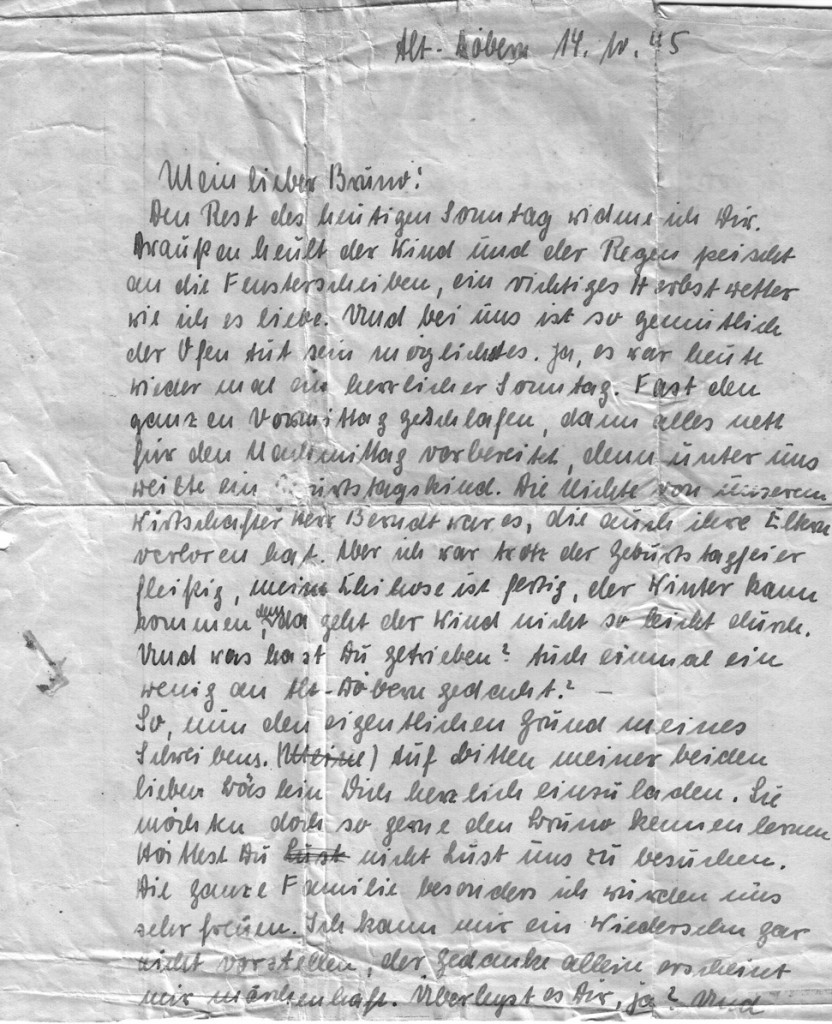 Alt-Döbern 14. 10. 45
Mein lieber Bruno!
Den Rest des heutigen Sonntag widme ich Dir.
Draußen heult der Wind und der Regen peischt
an die Fensterscheiben, ein richtiges Herbstwetter
wie ich es liebe. Und bei uns ist so gemütlich
der Ofen tut sein möglichstes. Ja, es war heute
wieder mal ein herrlicher Sonntag. Fast den
ganzen Vormittag geschlafen, dann alles nett
für den Nachmittag vorbereitet, denn unter uns
weilte ein Geburtstagskind. Die Nichte von unserem
Wirtschafter Herr Berndt war es, die auch ihre Eltern
verloren hat. Aber ich war trotz der Geburtstagfeier
fleißig, meine Skihose ist fertig, der Winter kann
kommen, denn da geht der Wind nicht so leicht durch.
Und was hast Du getrieben? Auch einmal ein
wenig an Alt-Döbern gedacht? –
So, nun den eigentlichen Grund meines
Schreibens. (Meine) Auf bitten meiner beiden
lieben Bäslein Dich herzlich einzuladen. Sie
möchten doch so gerne den Bruno kennen lernen
Hättest Du Lust nicht Lust uns zu besuchen.
Die ganze Familie besonders ich würden uns
sehr freuen. Ich kann mir ein Wiedersehn gar
nicht vorstellen, der Gedanke allein erscheint
mir märchenhaft. Überlegst es Dir, ja? Und